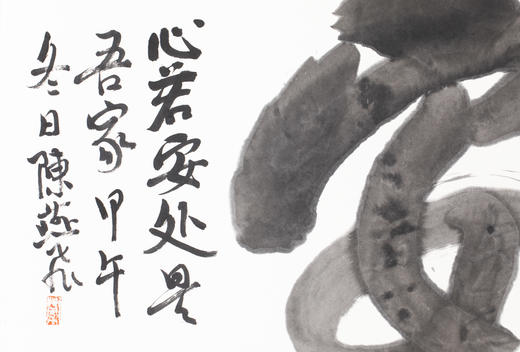 心若安处是
吾家甲午
冬日陳